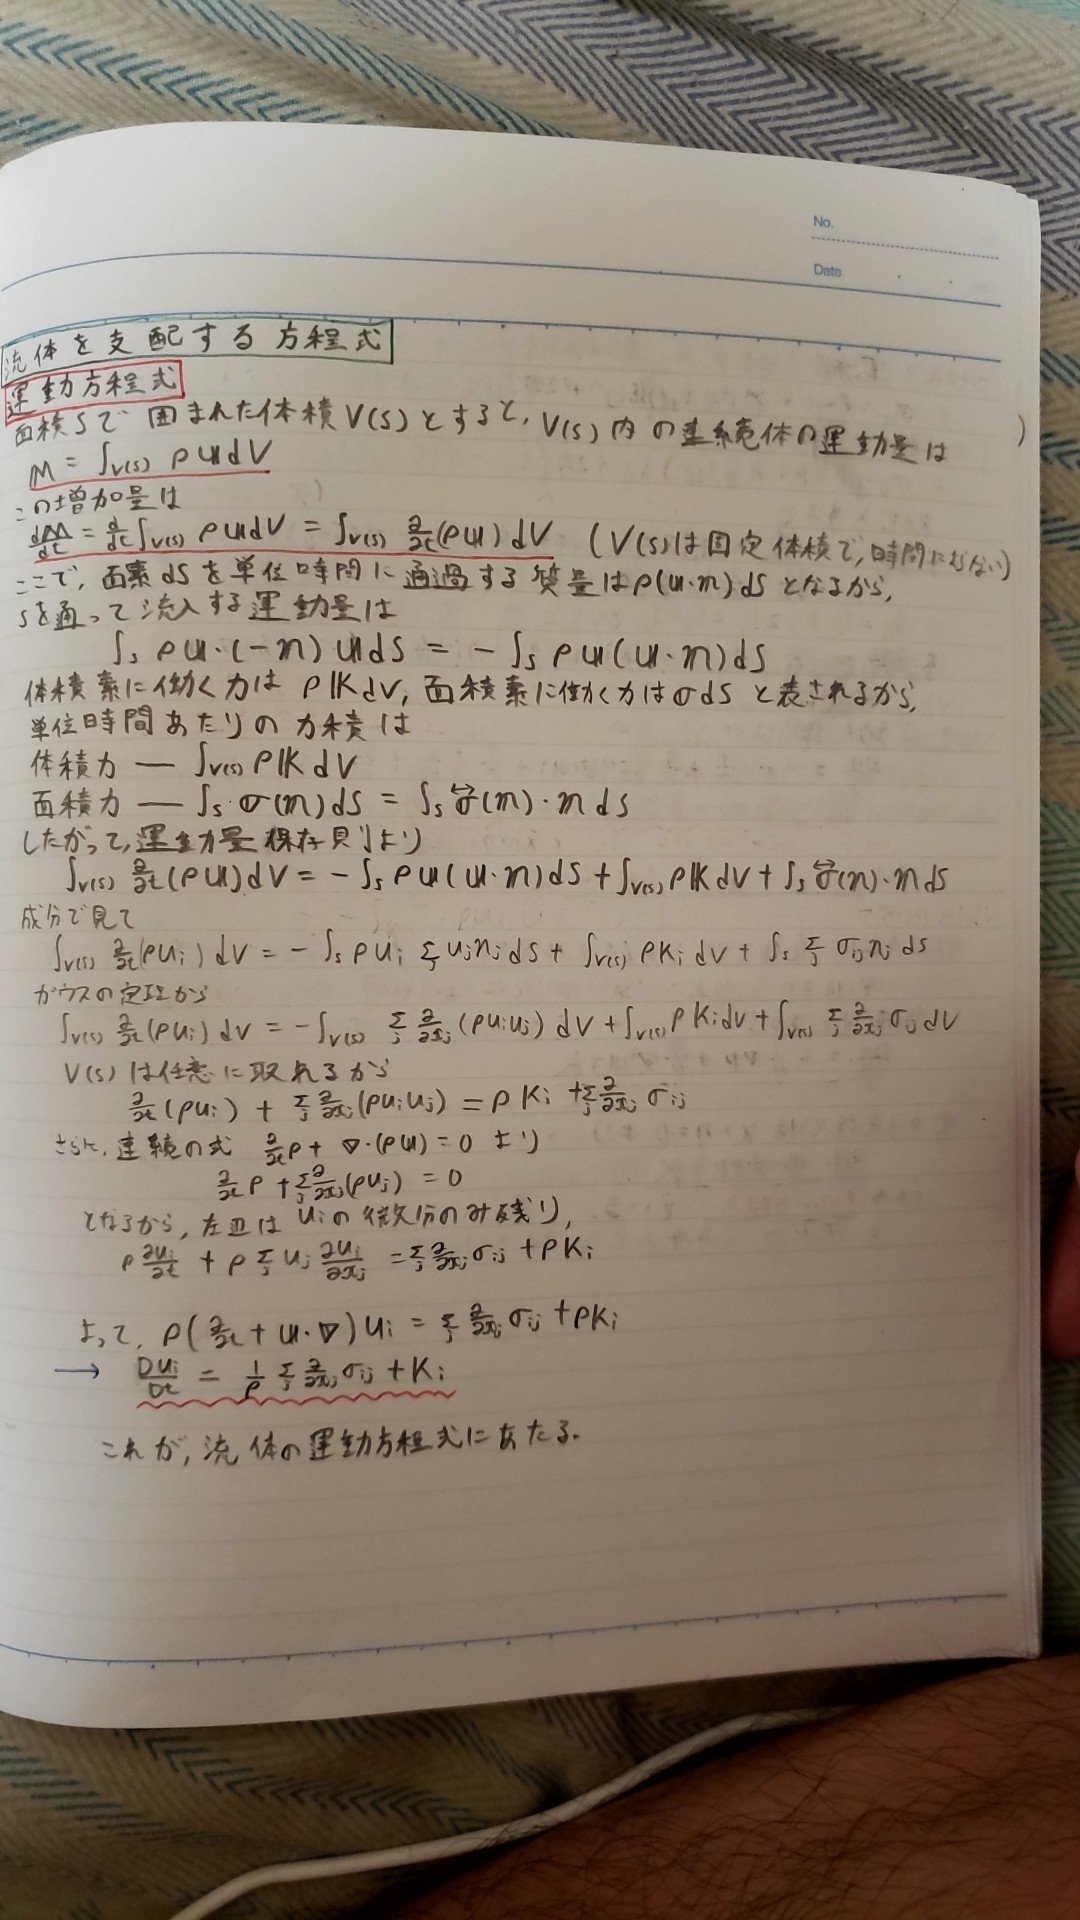 No.
Date
流体を支配する方程式
運動方程式
面積Sで囲まれた体積V(S)とすると, V(S)内の連続体の運動量は
M = ∫_{V(S)} ρu dV
この増加量は
dM/dt = d/dt ∫_{V(S)} ρu dV = ∫_{V(S)} ∂/∂t (ρu) dV (V(S)は固定体積で, 時間によらない)
ここで, 面素dSを単位時間に通過する質量はρ(u·n)dSとなるから,
Sを通って流入する運動量は
∫_S ρu·(-n) u dS = - ∫_S ρu(u·n)dS
体積素に働く力は ρK dV, 面積素に働く力はσdS と表されるから,
単位時間あたりの力積は
体積力 — ∫_{V(S)} ρK dV
面積力 — ∫_S σ(n)dS = ∫_S σ⃡(n)·n dS
したがって, 運動量保存則より
∫_{V(S)} ∂/∂t (ρu)dV = - ∫_S ρu(u·n)dS + ∫_{V(S)} ρK dV + ∫_S σ⃡(n)·n dS
成分で見て
∫_{V(S)} ∂/∂t (ρu_i) dV = - ∫_S ρu_i Σ_j u_j n_j dS + ∫_{V(S)} ρK_i dV + ∫_S Σ_j σ_ij n_j dS
ガウスの定理から
∫_{V(S)} ∂/∂t (ρu_i) dV = - ∫_{V(S)} Σ_j ∂/∂x_j (ρu_i u_j) dV + ∫_{V(S)} ρK_i dV + ∫_{V(S)} Σ_j ∂/∂x_j σ_ij dV
V(S)は任意に取れるから
∂/∂t (ρu_i) + Σ_j ∂/∂x_j (ρu_i u_j) = ρK_i + Σ_j ∂/∂x_j σ_ij
さらに, 連続の式 ∂/∂t ρ + ∇·(ρu) = 0 より
∂/∂t ρ + Σ_j ∂/∂x_j (ρu_j) = 0
となるから, 左辺は u_i の微分のみ残り,
ρ ∂u_i/∂t + ρ Σ_j u_j ∂u_i/∂x_j = Σ_j ∂/∂x_j σ_ij + ρK_i
よって, ρ(∂/∂t + u·∇)u_i = Σ_j ∂/∂x_j σ_ij + ρK_i
→ Du_i/Dt = 1/ρ Σ_j ∂/∂x_j σ_ij + K_i
これが, 流体の運動方程式にあたる.